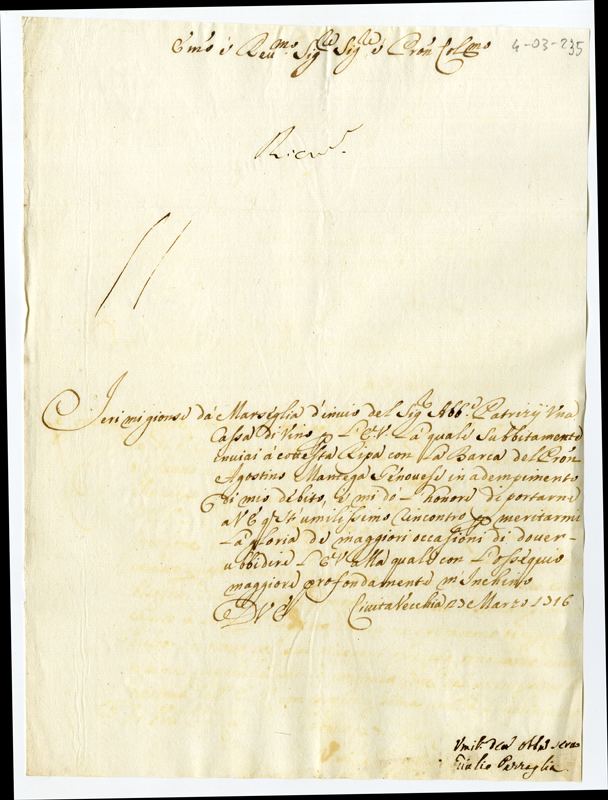 Em.o è Reu.mo Sig.re Sig.re è Pron Col.mo
4-03-235
Ricev.
Ieri mi gionse da Marseglia d'inuio del Sig.r Abb.e Patrizij Una
Cassa di Vino p L'E.V. La quale subbitamente
enuiai à cotesta Ripa con La Barca del Pron
Agostino Mantega Genouese in adempimento
di mio debito, è mi dò L'honore di portarne
a V E q.to umilissimo rincontro p meritarmi
La gloria de maggiori occasioni di douer
ubbidire L'E.V. alla quale con L'ossequio
maggiore profondamente m'Inchino
D V E Ciuita Vecchia 23 Marzo 1716
Umil. deu obbl seru
Giulio Pazzaglia